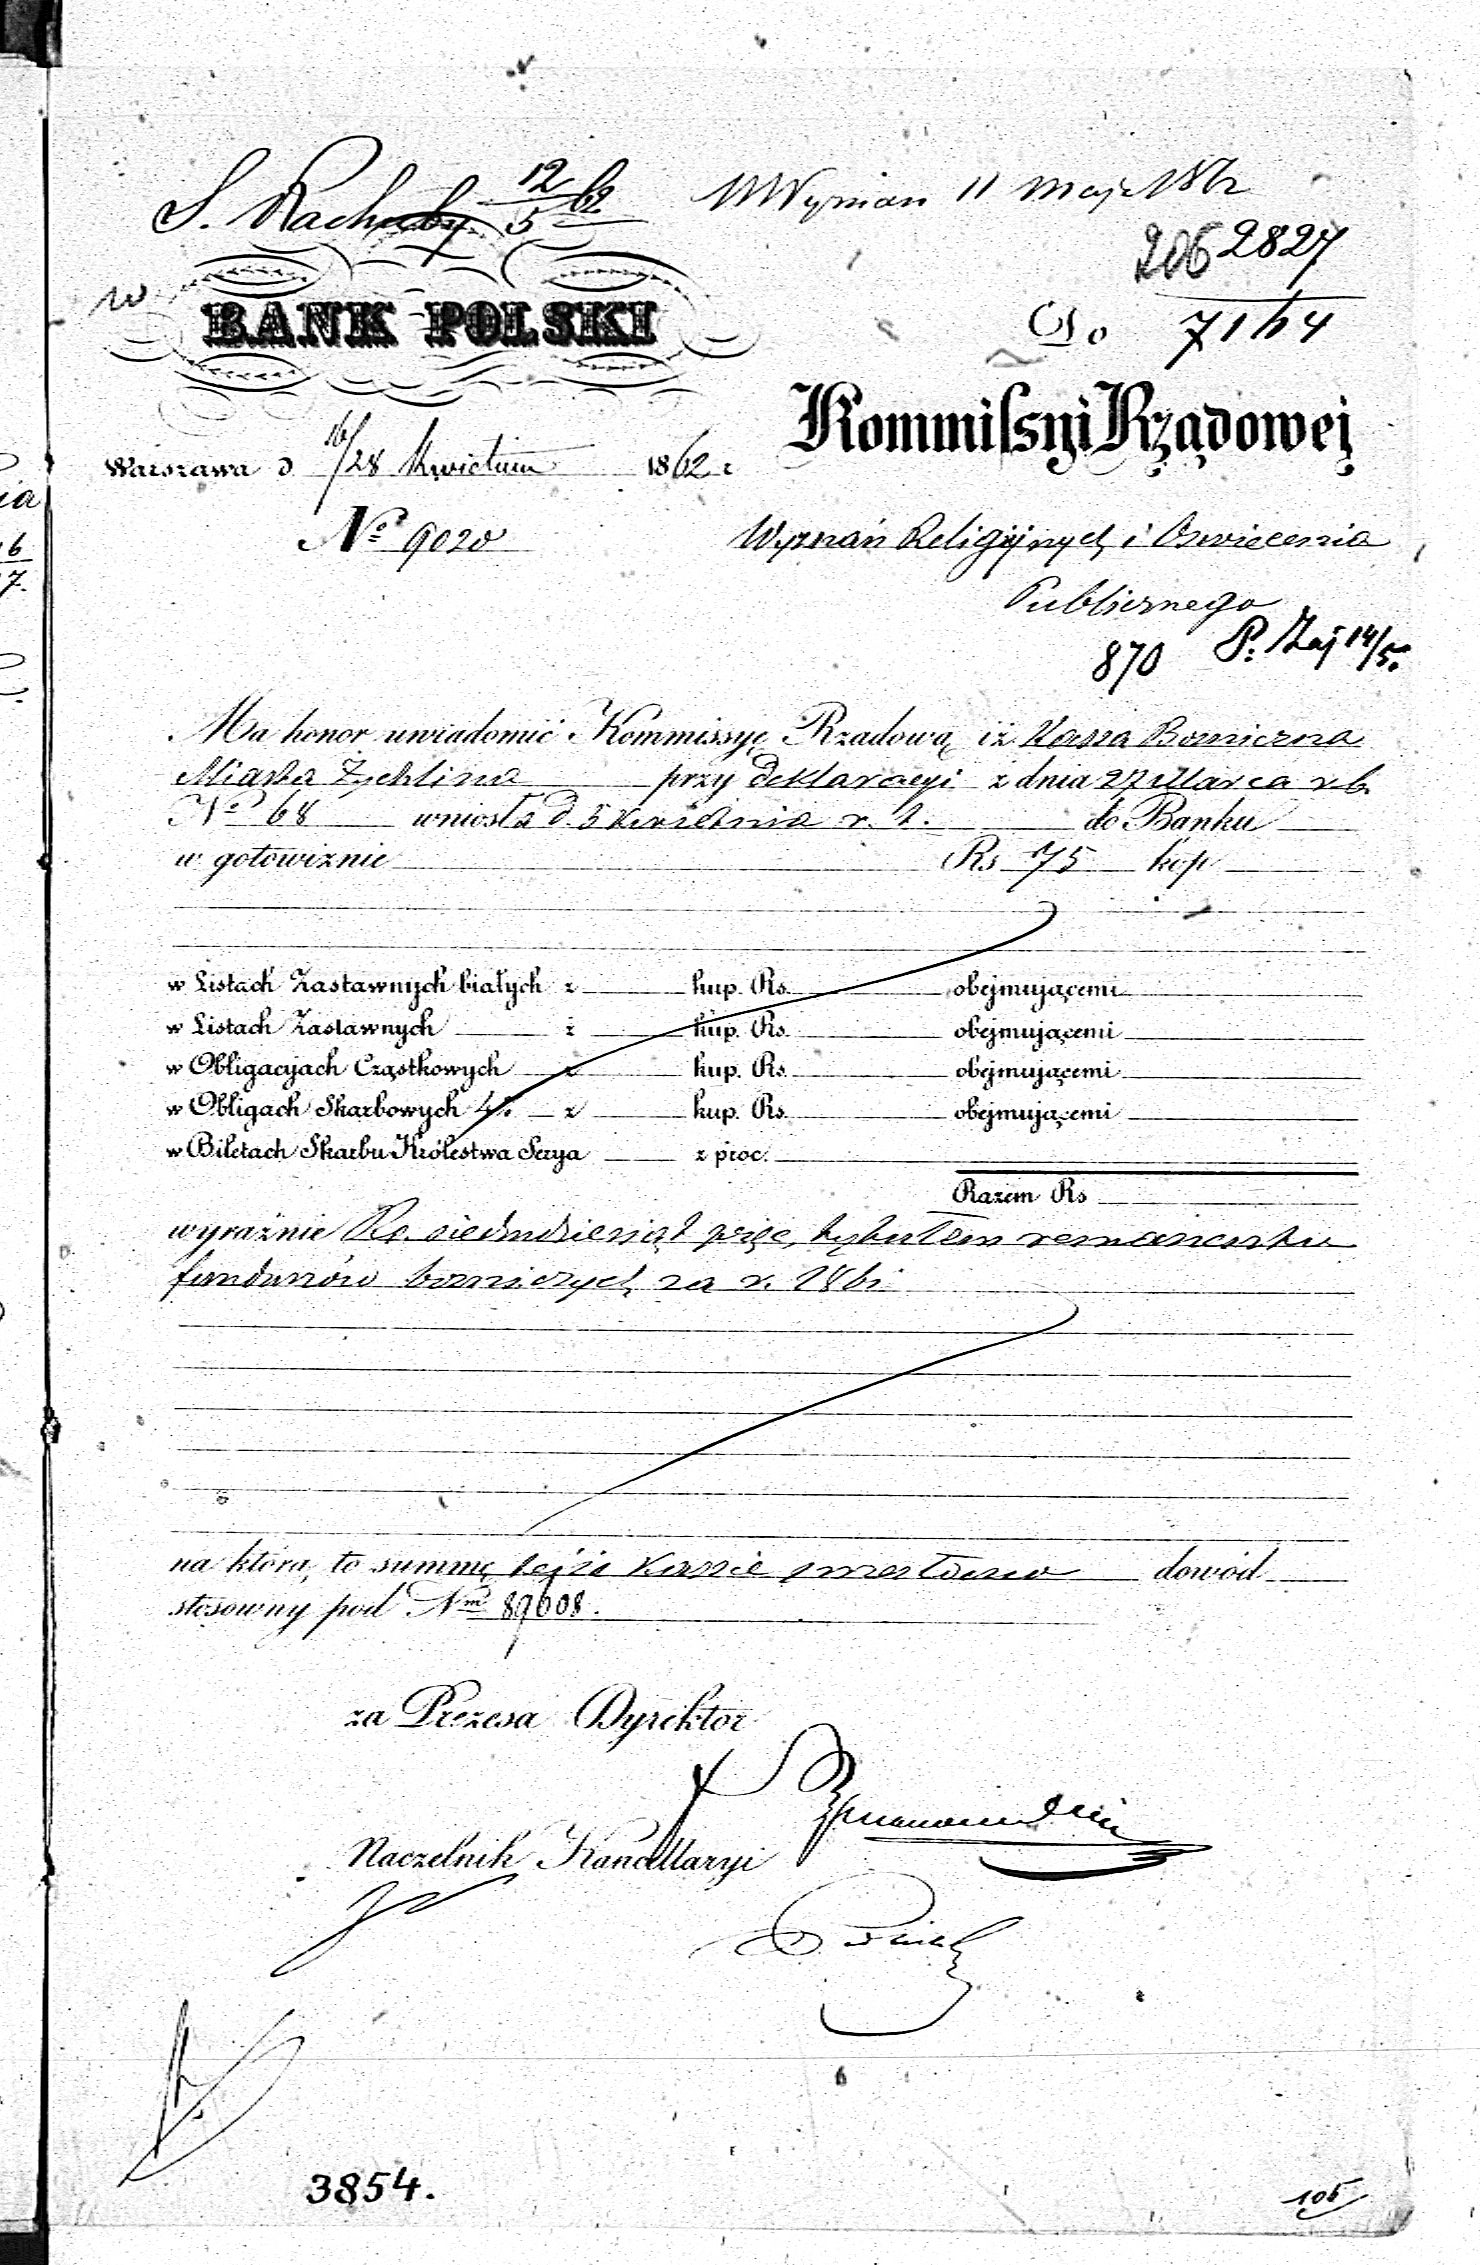 S. Rachuby 12/5 62
W Wyznań 11 Maja 1862
206 2827
w
BANK POLSKI
Do 7164
Kommissyi Rządowej
Warszawa d. 16/28 Kwietnia 1862 r.
Nº 9020
Wyznań Religijnych i Oświecenia
Publicznego
870 P. Zaj 14/5.
Ma honor uwiadomić Kommissyę Rządową iż Kassa Bożniczna
Miasta Żychlina przy deklaracyi z dnia 27 Marca r. b.
Nº 68 wniosła d. 5 Kwietnia r. b. do Banku
w gotowiznie Rs 75 kop
w Listach Zastawnych białych z kup. Rs. obejmującemi
w Listach Zastawnych z kup. Rs. obejmującemi
w Obligacyjach Cząstkowych z kup. Rs. obejmującemi
w Obligach Skarbowych 4% z kup. Rs. obejmującemi
w Biletach Skarbu Królestwa Serya z proc.
Razem Rs
wyraźnie Rs. siedmdziesiąt pięć, tytułem remanentu
funduszów bożniczych za r. 1861
na którą to summę tejże Kassie przesłano dowód
stosowny pod Nm 89608.
za Prezesa Dyrektor
Naczelnik Kancellaryi
3854.
105